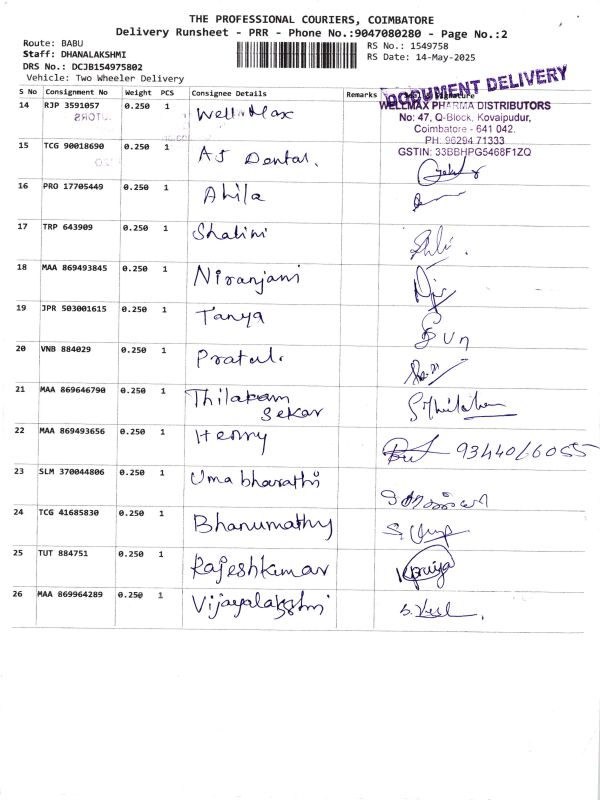 THE PROFESSIONAL COURIERS, COIMBATORE
Delivery Runsheet - PRR - Phone No.:9047080280 - Page No.:2
Route: BABU
RS No.: 1549758
Staff: DHANALAKSHMI
RS Date: 14-May-2025
DRS No.: DCJB154975802
Vehicle: Two Wheeler Delivery
DOCUMENT DELIVERY
S No Consignment No Weight PCS Consignee Details Remarks Signature
14 RJP 3591057 0.250 1 Well Max
WELLMAX PHARMA DISTRIBUTORS
No: 47, Q-Block, Kovaipudur,
Coimbatore - 641 042.
PH: 96294 71333
GSTIN: 33BBHPG5468F1ZQ
15 TCG 90018690 0.250 1 AJ Dental.
16 PRG 17705449 0.250 1 Ahila
17 TRP 643909 0.250 1 Shalini
18 MAA 869493845 0.250 1 Niranjani
19 JPR 503001615 0.250 1 Tanya
20 VNB 884029 0.250 1 Pratul.
21 MAA 869646790 0.250 1 Thilakam
Sekar
22 MAA 869493656 0.250 1 Henry
23 SLM 370044806 0.250 1 Uma bharathi
24 TCG 41685830 0.250 1 Bhanumathy
25 TUT 884751 0.250 1 Rajeshkumar
26 MAA 869964289 0.250 1 Vijayalakshmi